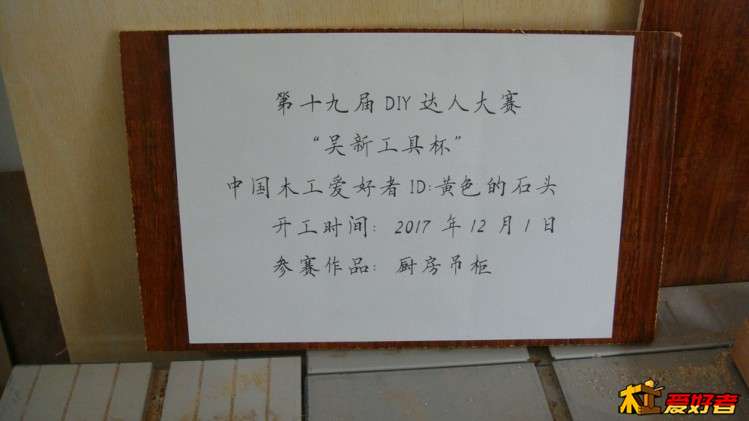 第十九届 DIY 达人大赛
“吴新工具杯”
中国木工爱好者 ID:黄色的石头
开工时间: 2017 年 12 月 1 日
参赛作品: 厨房吊柜
木工爱好者